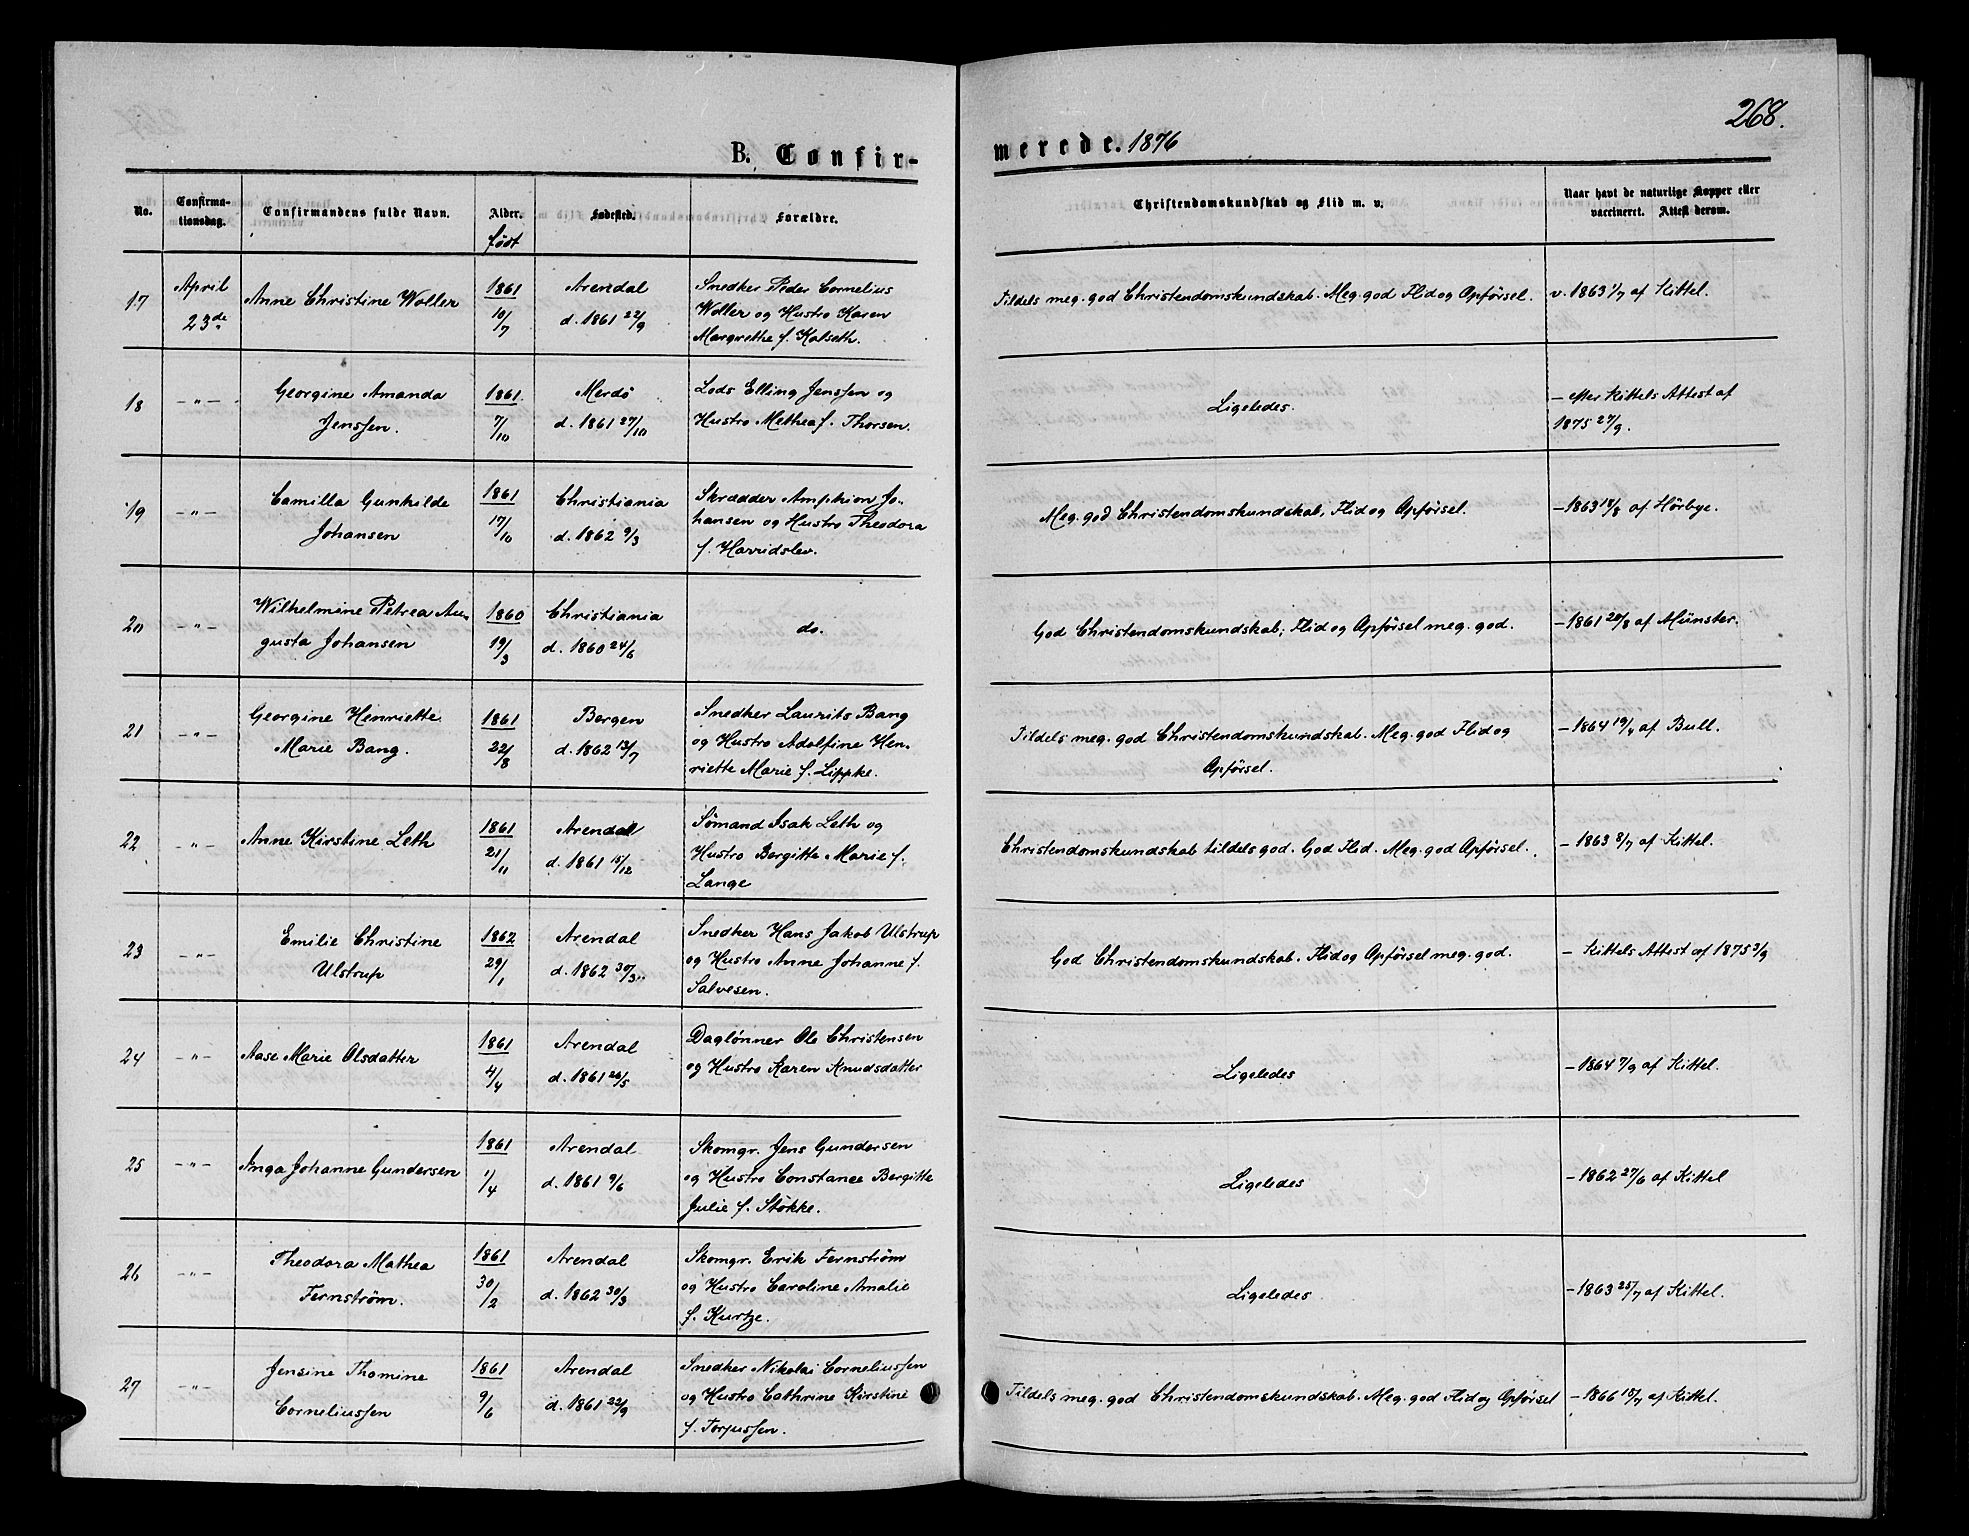 268.
B. Confir-
merede. 1876
No.
Confirma-
tionsdag.
Confirmandens fulde Navn.
Alder.
født
Fødested.
Forældre.
Christendomskundskab og Flid m. v.
Naar havt de naturlige Kopper eller
vaccineret. Attest derom.
17
April
23de
Anne Christine Woller
1861
10/7
Arendal
d. 1861 22/9
Snedker Peder Cornelius
Woller og Hustro Karen
Margrethe f. Kalseth.
Tildels meg. god Christendomskundskab. Meg. god Flid og Opførsel.
v. 1863 1/7 af Kittel.
18
-"-
Georgine Amanda
Jenssen.
1861
7/10
Merdø
d. 1861 27/10
Lods Elling Jenssen og
Hustro Methea f. Thorsen.
Ligeledes.
- efter Kittels Attest af
1875 27/9.
19
-"-
Camilla Gunhilde
Johansen
1861
17/10
Christiania
d. 1862 9/3
Skrædder Amphion Jo-
hansen og Hustro Theodora
f. Harridslev.
Meg. god Christendomskundskab, Flid og Opførsel.
- 1863 18/8 af Hörbye.
20
-"-
Wilhelmine Petrea Au-
gusta Johansen
1860
19/3
Christiania
d. 1860 24/6
do.
God Christendomskundskab; Flid og Opførsel meg. god.
- 1861 20/8 af Münster.
21
-"-
Georgine Henriette
Marie Bang.
1861
22/8
Bergen
d. 1862 13/7
Snedker Laurits Bang
og Hustro Adolfine Hen-
riette Marie f. Lippke.
Tildels meg. god Christendomskundskab. Meg. god Flid og
Opførsel.
- 1864 19/4 af Bull.
22
-"-
Anne Kirstine Leth
1861
21/11
Arendal
d. 1861 15/12
Sømand Isak Leth og
Hustro Bergitte Marie f.
Lange
Christendomskundskab tildels god. God Flid. Meg. god Opførsel.
- 1863 8/7 af Kittel.
23
-"-
Emilie Christine
Ulstrup
1862
29/1
Arendal
d. 1862 30/3
Snedker Hans Jakob Ulstrup
og Hustro Anne Johanne f.
Salvesen.
God Christendomskundskab. Flid og Opførsel meg. god.
- Kittels Attest af 1875 3/9
24
-"-
Aase Marie Olsdatter
1861
4/4
Arendal
d. 1861 26/5
Daglønner Ole Christensen
og Hustro Karen Knudsdatter
Ligeledes
- 1864 7/9 af Kittel.
25
-"-
Inga Johanne Gundersen
1861
1/4
Arendal
d. 1861 9/6
Skomgr. Jens Gundersen
og Hustro Constance Bergitte
Julie f. Stökke.
Ligeledes
- 1862 27/6 af Kittel
26
-"-
Theodora Mathea
Fernström.
1861
30/2
Arendal
d. 1862 30/3
Skomgr. Erik Fernström
og Hustro Caroline Amalie
f. Kurtze.
Ligeledes
- 1863 25/7 af Kittel.
27
-"-
Jensine Thomine
Corneliussen
1861
9/6
Arendal
d. 1861 22/9
Snedker Nikolai Corneliussen
og Hustro Cathrine Kirstine
f. Torjussen.
Tildels meg. god Christendomskundskab. Meg. god Flid og Opførsel
- 1866 18/7 af Kittel.